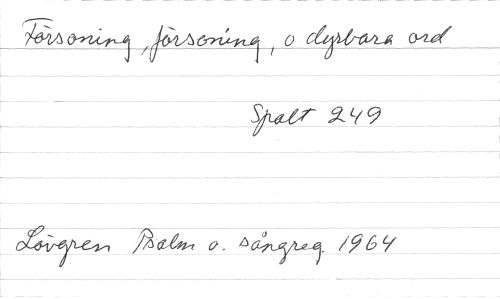 Försoning, försoning, o dyrbara ord
Spalt 249
Lövgren Psalm o. sångreg. 1964